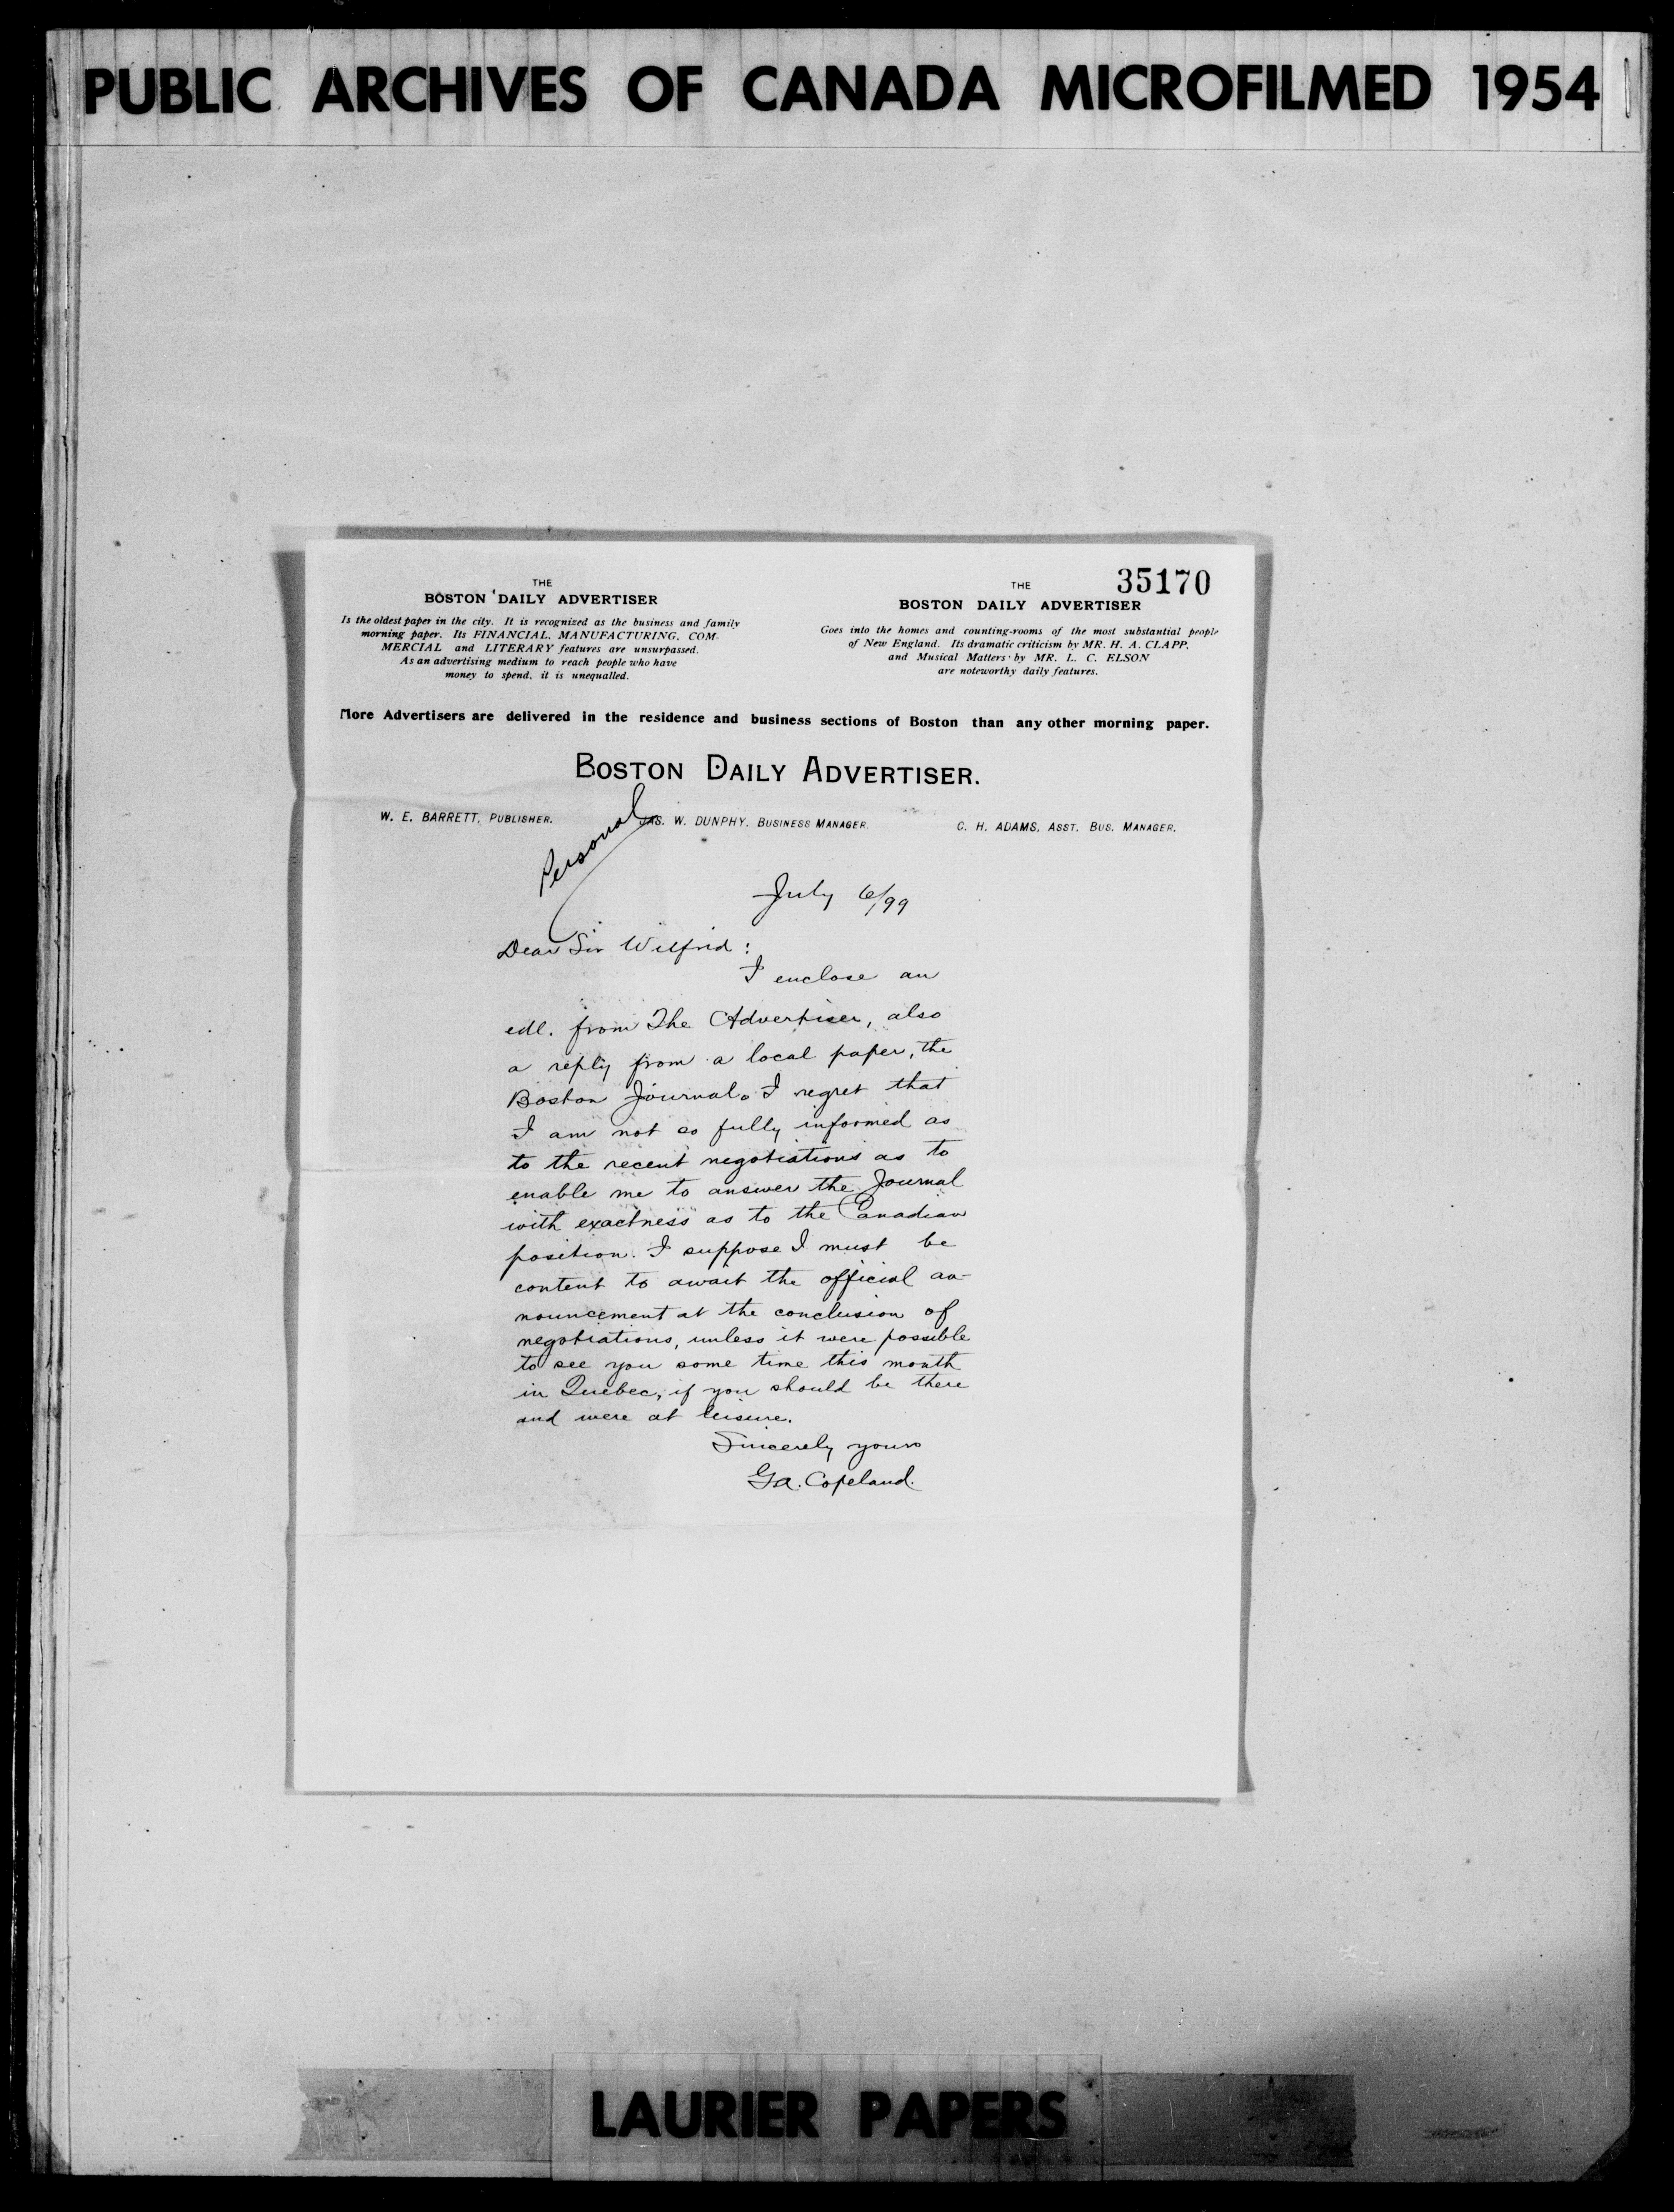 PUBLIC ARCHIVES OF CANADA MICROFILMED 1954
35170
THE
BOSTON DAILY ADVERTISER
Is the oldest paper in the city. It is recognized as the business and family
morning paper. Its FINANCIAL, MANUFACTURING, COM-
MERCIAL and LITERARY features are unsurpassed.
As an advertising medium to reach people who have
money to spend, it is unequalled.
THE
BOSTON DAILY ADVERTISER
Goes into the homes and counting-rooms of the most substantial people
of New England. Its dramatic criticism by MR. H. A. CLAPP,
and Musical Matters by MR. L. C. ELSON
are noteworthy daily features.
More Advertisers are delivered in the residence and business sections of Boston than any other morning paper.
BOSTON DAILY ADVERTISER.
W. E. BARRETT, PUBLISHER.
JAS. W. DUNPHY, BUSINESS MANAGER.
C. H. ADAMS, ASST. BUS. MANAGER.
Personal
July 6/99
Dear Sir Wilfrid:
I enclose an
edl. from The Advertiser, also
a reply from a local paper, the
Boston Journal. I regret that
I am not so fully informed as
to the recent negotiations as to
enable me to answer the Journal
with exactness as to the Canadian
position. I suppose I must be
content to await the official an-
nouncement at the conclusion of
negotiations, unless it were possible
to see you some time this month
in Quebec, if you should be there
and were at leisure.
Sincerely yours
G.A. Copeland.
LAURIER PAPERS